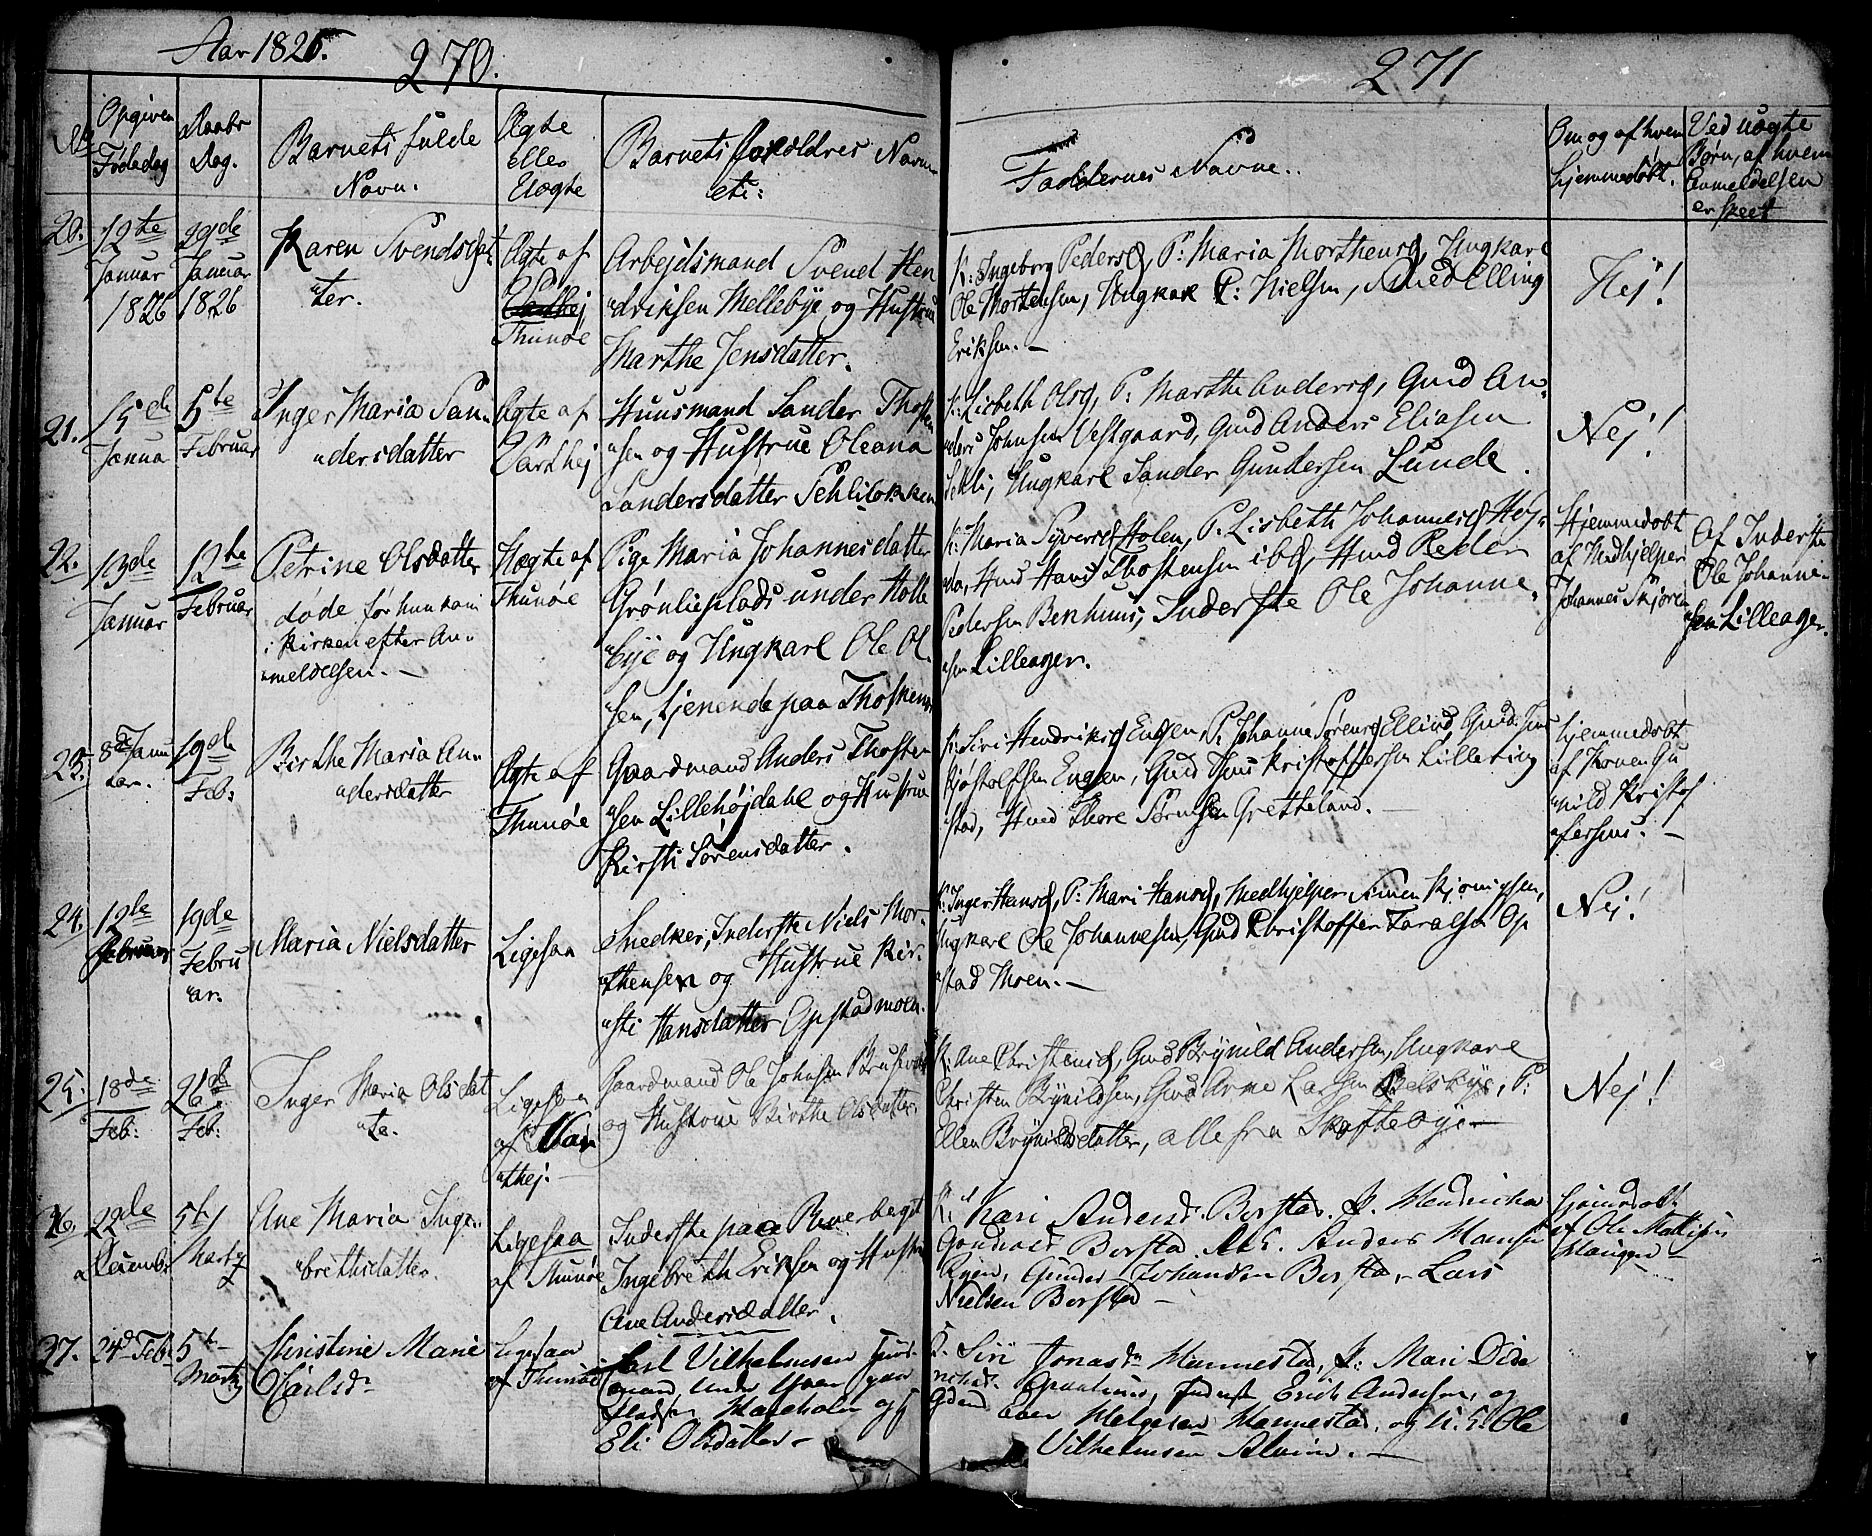 Aar 1826.
270.
271
No
Opgiven Fødedag
Daabs Dag.
Barnets fulde Navn.
Ægte eller Uægte
Barnets Forældres Navne etc:
Faddernes Navne.
Om og af hvem hjemmedøbt.
Ved uægte Børn, af hvem Anmeldelsen er skeet
20.
12te Januar 1826
29de Januar 1826
Karen Svendsdat
"ter.
Ægte af
Thunøe
Arbejdsmand Svend Hen
"driksen Mellebye og Hustrue
Marthe Jensdatter.
K: Ingeborg Pedersd, P: Maria Morthensd, Ungkarl
Ole Mortensen, Ungkarl P: Nielsen, Smed Elling
Eriksen. —
Nej!
21.
15de Janua
5te Februar
Inger Maria San
"dersdatter
Ægte af
Varthej
Huusmand Sander Thosten
"sen og Hustrue Oleana
Sandersdatter Sehlilokken
K: Lisbeth Olsd, P: Marthe Andersd, Gmd An
"ders Johnsen Vestgaard, Gmd Anders Eliasen
Sekli, Ungkarl Sander Gundersen Lunde.
Nej!
22.
13de Januar
12te Februar
Petrine Olsdatter
døde før hun kom
i Kirken efter An
"meldelsen. —
Uægte af
Thunøe
Pige Maria Johannesdatter
Grønlieplads under Holle
"bye og Ungkarl Ole Ol
"sen, tjenende paa Thostens
K: Maria Syversd Holen, P: Lisbeth Johannesd Hej
"da, Hmd Hans Thostensen ibd, Hmd Peder
Pedersen Benhuus, Inderste Ole Johanne
"sen Lilleager.
Hjemmedøbt
af Medhjelper
Johannes Skjøren
Af Inderste
Ole Johanne
"sen Lilleager.
23.
8de Janu
"ar.
19de Feb:
Birthe Maria An
"dersdatter
Ægte af
Thunøe
Gaardmand Anders Thosten
"sen Lillehøjdahl og Hustrue
Kirsti Sørensdatter.
K: Siri Hendriksd Engen, P: Johanne Sørensd Ellind, Gmd Jens
Kjøstolfsen Engen, Gmd Jens Kristoffersen Lilleting
"stad, Hmd Thore Sørensen Gretteland. —
hjemmedøbt
af Konen Gu
"nild Kristof
"fersens. —
24.
12te Februar
19de Febru
"ar.
Maria Nielsdatter
Ligesaa
Snedker, Inderste Niels Mor
"thensen og Hustrue Kir
"sti Hansdatter Opstadmoen.
K: Inger Hansd, P: Mari Hansd, Medhjelper Simen Kjønigsen,
Ungkarl Ole Johannesen, Gmd Christoffer Taralsen Op
"stad Moen. —
Nej!
25.
18de Feb:
26de Feb:
Inger Maria Olsdat
"te.
Ligesaa
af Var
"thej.
Gaardmand Ole Johnsen
og Hustrue Birthe Olsdatter
K: Ane Christensd, Gmd Brynild Andersen, Ungkarl
Christen Brynildsen, Gmd Arne Larsen, P:
Ellen Brynildsdatter, alle fra Skofteøye —
Nej!
26.
22de Decemb:
5te Marty
Ane Maria Inge
"brethsdatter.
Ligesaa
af Thunøe
Inderste paa
Ingebreth Eriksen og Hustrue
Ane Andersdatter.
K: Kari Andersd. Borstad. P. Hendricha
Borsta Anders Hansen
Ryen, Gunder Johansen Borsta, Lars
Nielsen Borstad —
hjemmedøbt
af Ole Mattisen
Haugen
27.
24d Feb:
5te Marty
Christine Marie
Carlsd.
Ligesaa
af Thunøe
Carl Vilhelmsen Huus
mand under
Marcholm og H
Eli Olsdatter —
K. Siri Jonasd. Hannestad, P: Mari
Inderst Erich Andersen, og
Even Helgesen Hannestad, og U. K. Ole
Vilhelmsen Alvim. —